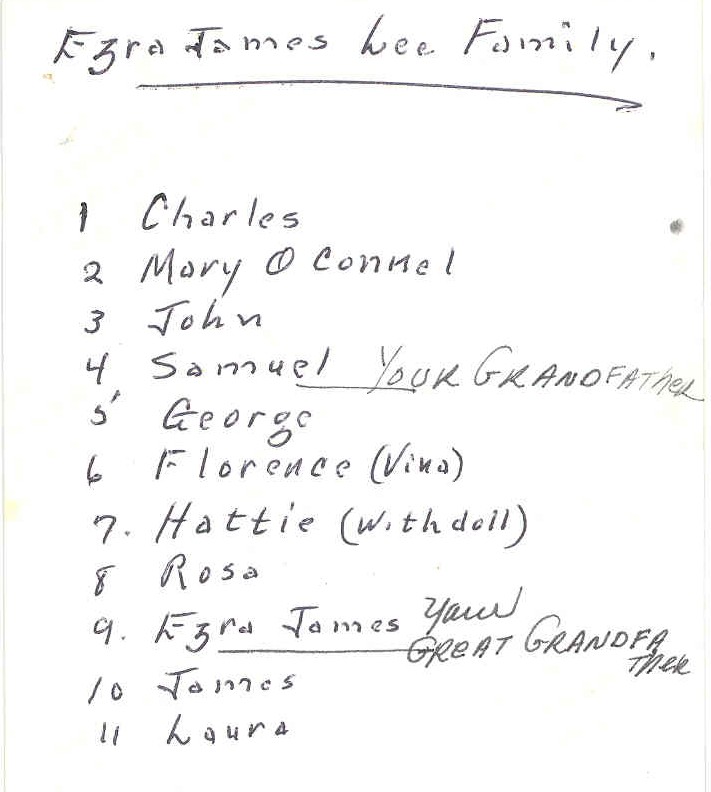 Ezra James Lee Family.
1 Charles
2 Mary O Connel
3 John
4 Samuel YOUR GRANDFATHER
5 George
6 Florence (Vina)
7. Hattie (with doll)
8 Rosa
9. Ezra James Your GREAT GRANDFATHER
10 James
11 Laura